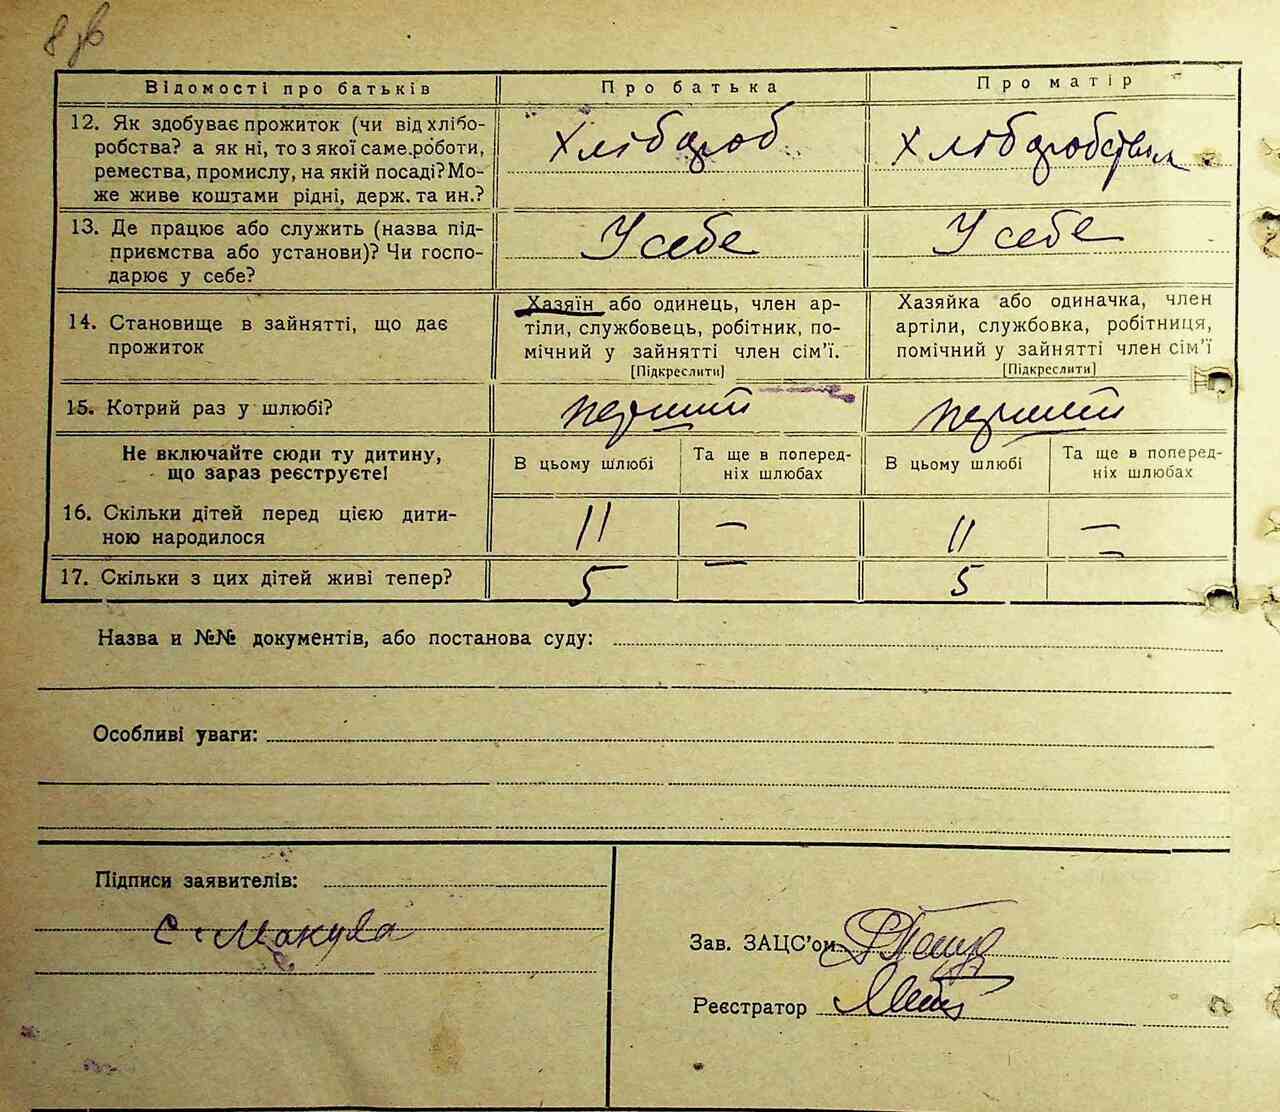 8 зв
Відомості про батьків Про батька Про матір
12. Як здобуває прожиток (чи від хлібо-
робства? а як ні, то з якої саме роботи,
ремества, промислу, на якій посаді? Мо-
же живе коштами рідні, держ. та ин.?
Хлібороб
Хліборобством
13. Де працює або служить (назва під-
приємства або установи)? Чи госпо-
дарює у себе?
У себе
У себе
14. Становище в зайнятті, що дає
прожиток
Хазяїн або одинець, член ар-
тіли, службовець, робітник, по-
мічний у зайнятті член сім'ї.
[Підкреслити]
Хазяйка або одиначка, член
артіли, службовка, робітниця,
помічний у зайнятті член сім'ї
[Підкреслити]
15. Котрий раз у шлюбі?
первий
первий
Не включайте сюди ту дитину,
що зараз реєструєте!
В цьому шлюбі
Та ще в поперед-
ніх шлюбах
В цьому шлюбі
Та ще в поперед-
ніх шлюбах
16. Скільки дітей перед цією дити-
ною народилося
11 — 11 —
17. Скільки з цих дітей живі тепер?
5 — 5 —
Назва и №№ документів, або постанова суду:
Особливі уваги:
Підписи заявителів:
С. Макуха
Зав. ЗАЦС'ом
Реєстратор